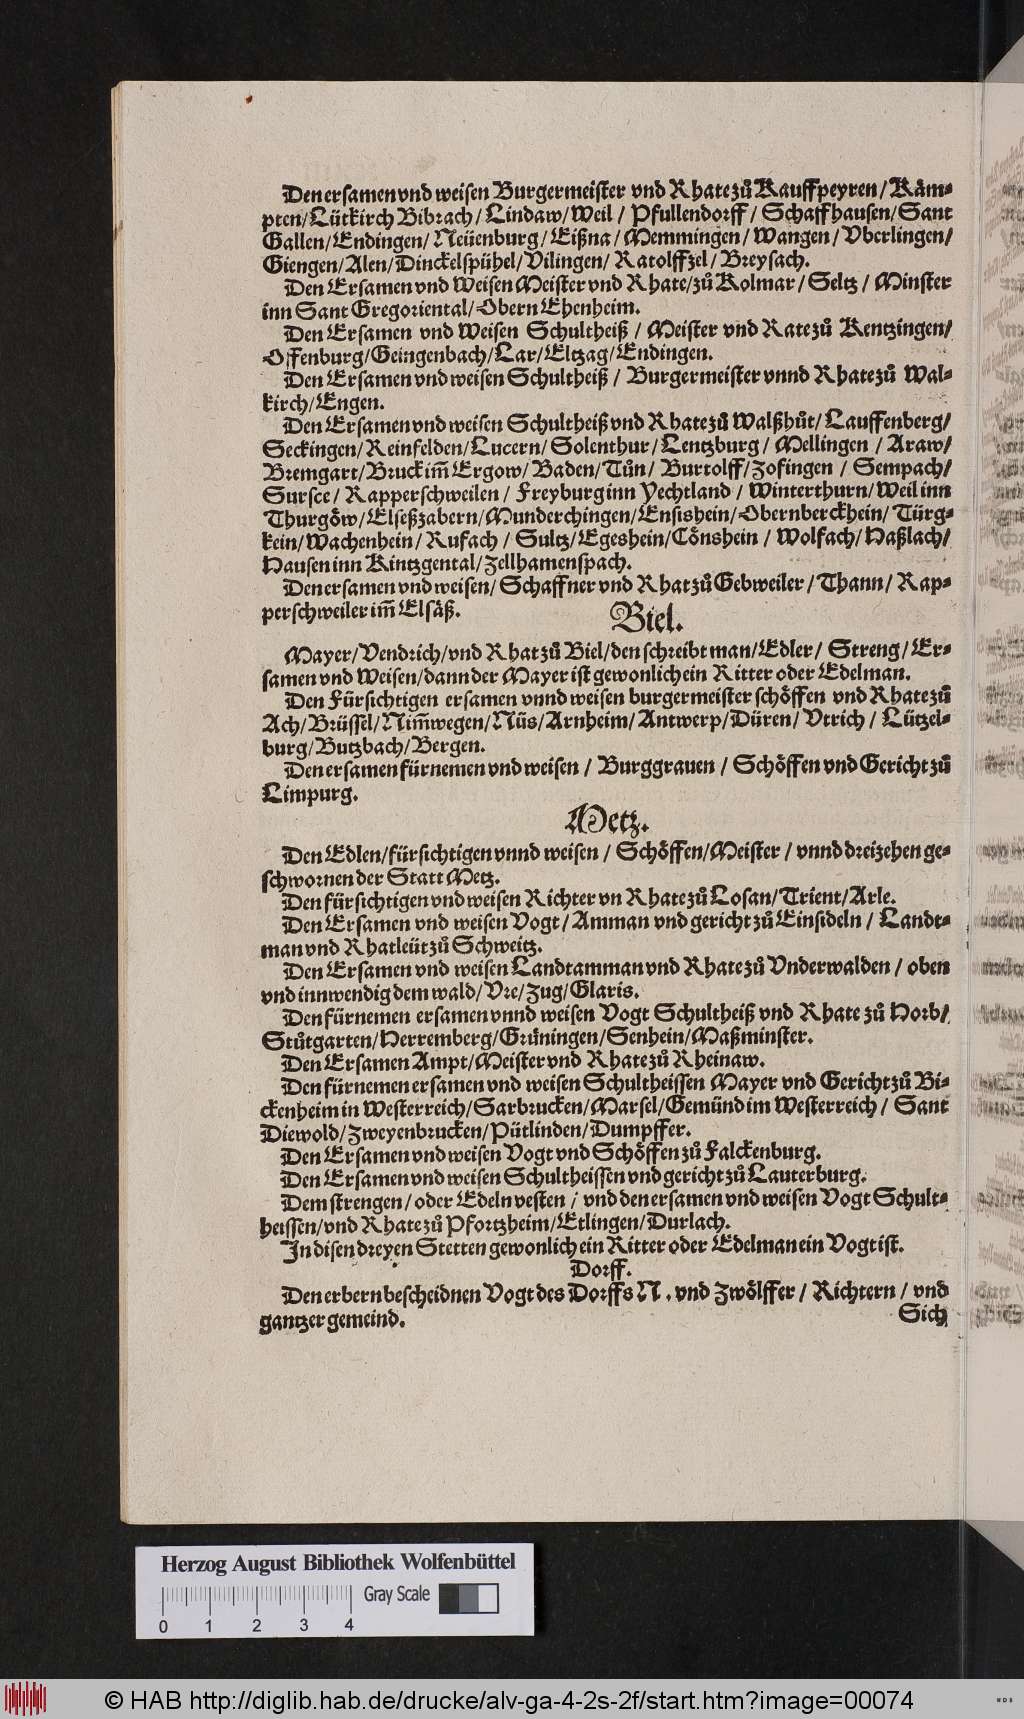 Den ersamen vnd weisen Burgermeister vnd Rhate zů Kauffpeyren / Käm-
pten/Lütkirch Bibrach / Lindaw/Weil / Pfullendorff / Schaffhausen/Sant
Gallen/Endingen/Neüenburg/Eißna/Memmingen/Wangen/Vberlingen/
Giengen/Alen/Dinckelspühel/Vilingen/Ratolffzel/Breysach.
Den Ersamen vnd Weisen Meister vnd Rhate/zů Kolmar/Seltz/Minster
inn Sant Gregoriental/Obern Ehenheim.
Den Ersamen vnd Weisen Schultheiß / Meister vnd Rate zů Kentzingen/
Offenburg/Geingenbach/Lar/Eltzag/Endingen.
Den Ersamen vnd weisen Schultheiß / Burgermeister vnnd Rhate zů Wal-
kirch/Engen.
Den Ersamen vnd weisen Schultheiß vnd Rhate zů Walßhůt/Lauffenberg/
Seckingen/Reinfelden/Lucern/Solenthur/Lentzburg/Mellingen/Araw/
Bremgart/Bruck im̃ Ergow/Baden/Tůn/Burtolff/Zofingen/Sempach/
Sursee/Rapperschweilen/Freyburg inn Yechtland/Winterthurn/Weil inn
Thurgöw/Elseßzabern/Munderchingen/Ensishein/Obernberckhein/Türg-
kein/Wachenhein/Rufach/Sultz/Egeshein/Cönshein/Wolfach/Haßlach/
Hausen inn Kintzgental/Zellhamenspach.
Den ersamen vnd weisen/Schaffner vnd Rhat zů Gebweiler/Thann/Rap-
perschweiler im̃ Elsäß.
Biel.
Mayer/Vendrich/vnd Rhat zů Biel/den schreibt man/Edler/Streng/Er-
samen vnd Weisen/dann der Mayer ist gewonlich ein Ritter oder Edelman.
Den Fürsichtigen ersamen vnnd weisen burgermeister schöffen vnd Rhate zů
Ach/Brüssel/Nim̃wegen/Nüs/Arnheim/Antwerp/Düren/Vtrich/Lützel-
burg/Butzbach/Bergen.
Den ersamen fürnemen vnd weisen / Burggrauen / Schöffen vnd Gericht zů
Limpurg.
Metz.
Den Edlen/fürsichtigen vnnd weisen / Schöffen/Meister / vnnd dreizehen ge-
schwornen der Statt Metz.
Den fürsichtigen vnd weisen Richter vn Rhate zů Losan/Trient/Arle.
Den Ersamen vnd weisen Vogt/Amman vnd gericht zů Einsideln / Landt-
man vnd Rhatleüt zů Schweitz.
Den Ersamen vnd weisen Landtamman vnd Rhate zů Vnderwalden / oben
vnd innwendig dem wald/Vre/Zug/Glaris.
Den fürnemen ersamen vnnd weisen Vogt Schultheiß vnd Rhate zů Horb/
Stůtgarten/Herremberg/Grüningen/Senhein/Maßminster.
Den Ersamen Ampt/Meister vnd Rhate zů Rheinaw.
Den fürnemen ersamen vnd weisen Schultheissen Mayer vnd Gericht zů Bi-
ckenheim in Westerreich/Sarbrucken/Marsel/Gemünd im Westerreich / Sant
Diewold/Zweyenbrucken/Pütlinden/Dumpffer.
Den Ersamen vnd weisen Vogt vnd Schöffen zů Falckenburg.
Den Ersamen vnd weisen Schultheissen vnd gericht zů Lauterburg.
Dem strengen/oder Edeln vesten / vnd den ersamen vnd weisen Vogt Schult-
heissen/vnd Rhate zů Pfortzheim/Etlingen/Durlach.
In disen dreyen Stetten gewonlich ein Ritter oder Edelman ein Vogt ist.
Dorff.
Den erbern bescheidnen Vogt des Dorffs N. vnd Zwölffer / Richtern / vnd
gantzer gemeind.
Sich
Herzog August Bibliothek Wolfenbüttel
Gray Scale
0 1 2 3 4
© HAB http://diglib.hab.de/drucke/alv-ga-4-2s-2f/start.htm?image=00074